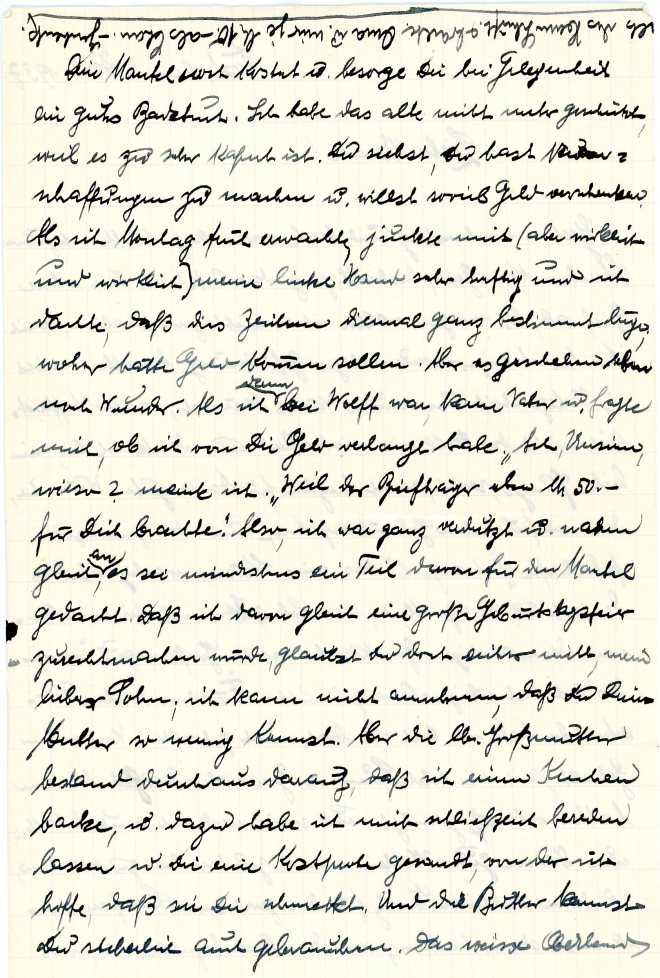 Dein Mantel wert kostet u. besorge Dir bei Gelegenheit
ein gutes Badetuch. Ich habe das alte nicht mehr geschickt,
weil es zu sehr kaput ist. Du siehst, Du hast
schaffungen zu machen u. willst soviel Geld verschenken.
Als ich Montag früh erwachte, juckte mich (aber wirklich
und wirklich) meine linke Hand sehr heftig und ich
dachte, daß dies Zeichen diesmal ganz bestimmt lüge,
woher hätte Geld kommen sollen. Aber es geschehen eben
noch Wunder. Als ich dann bei Wolff war, kam Vater u. fragte
mich, ob ich von Dir Geld verlangt habe. "Ich, Unsinn,
wieso? meinte ich. "Weil der Briefträger eben M 50.-
für Dich brachte." Also, ich war ganz verdutzt u. nahm
gleich an, es sei mindestens ein Teil davon für den Mantel
gedacht. Daß ich davon gleich eine große Geburtstagsfeier
zurechtmachen würde, glaubst Du doch sicher nicht, mein
lieber Sohn, ich kann nicht annehmen, daß Du Deine
Mutter so wenig kennst. Aber die lb. Großmutter
bestand durchaus darauf, daß ich einen Kuchen
backe, u. dazu habe ich mich schließlich bereden
lassen u. Dir eine Kostprobe gesandt, von der ich
hoffe, daß sie Dir schmeckt. Und die Butter kannst
Du sicherlich auch gebrauchen. Das weisse Oberhemd